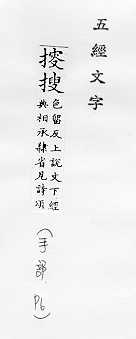 五經文字
㨮搜
色留反上說文下經
典相承隸省見詩頌
(手部. P6)